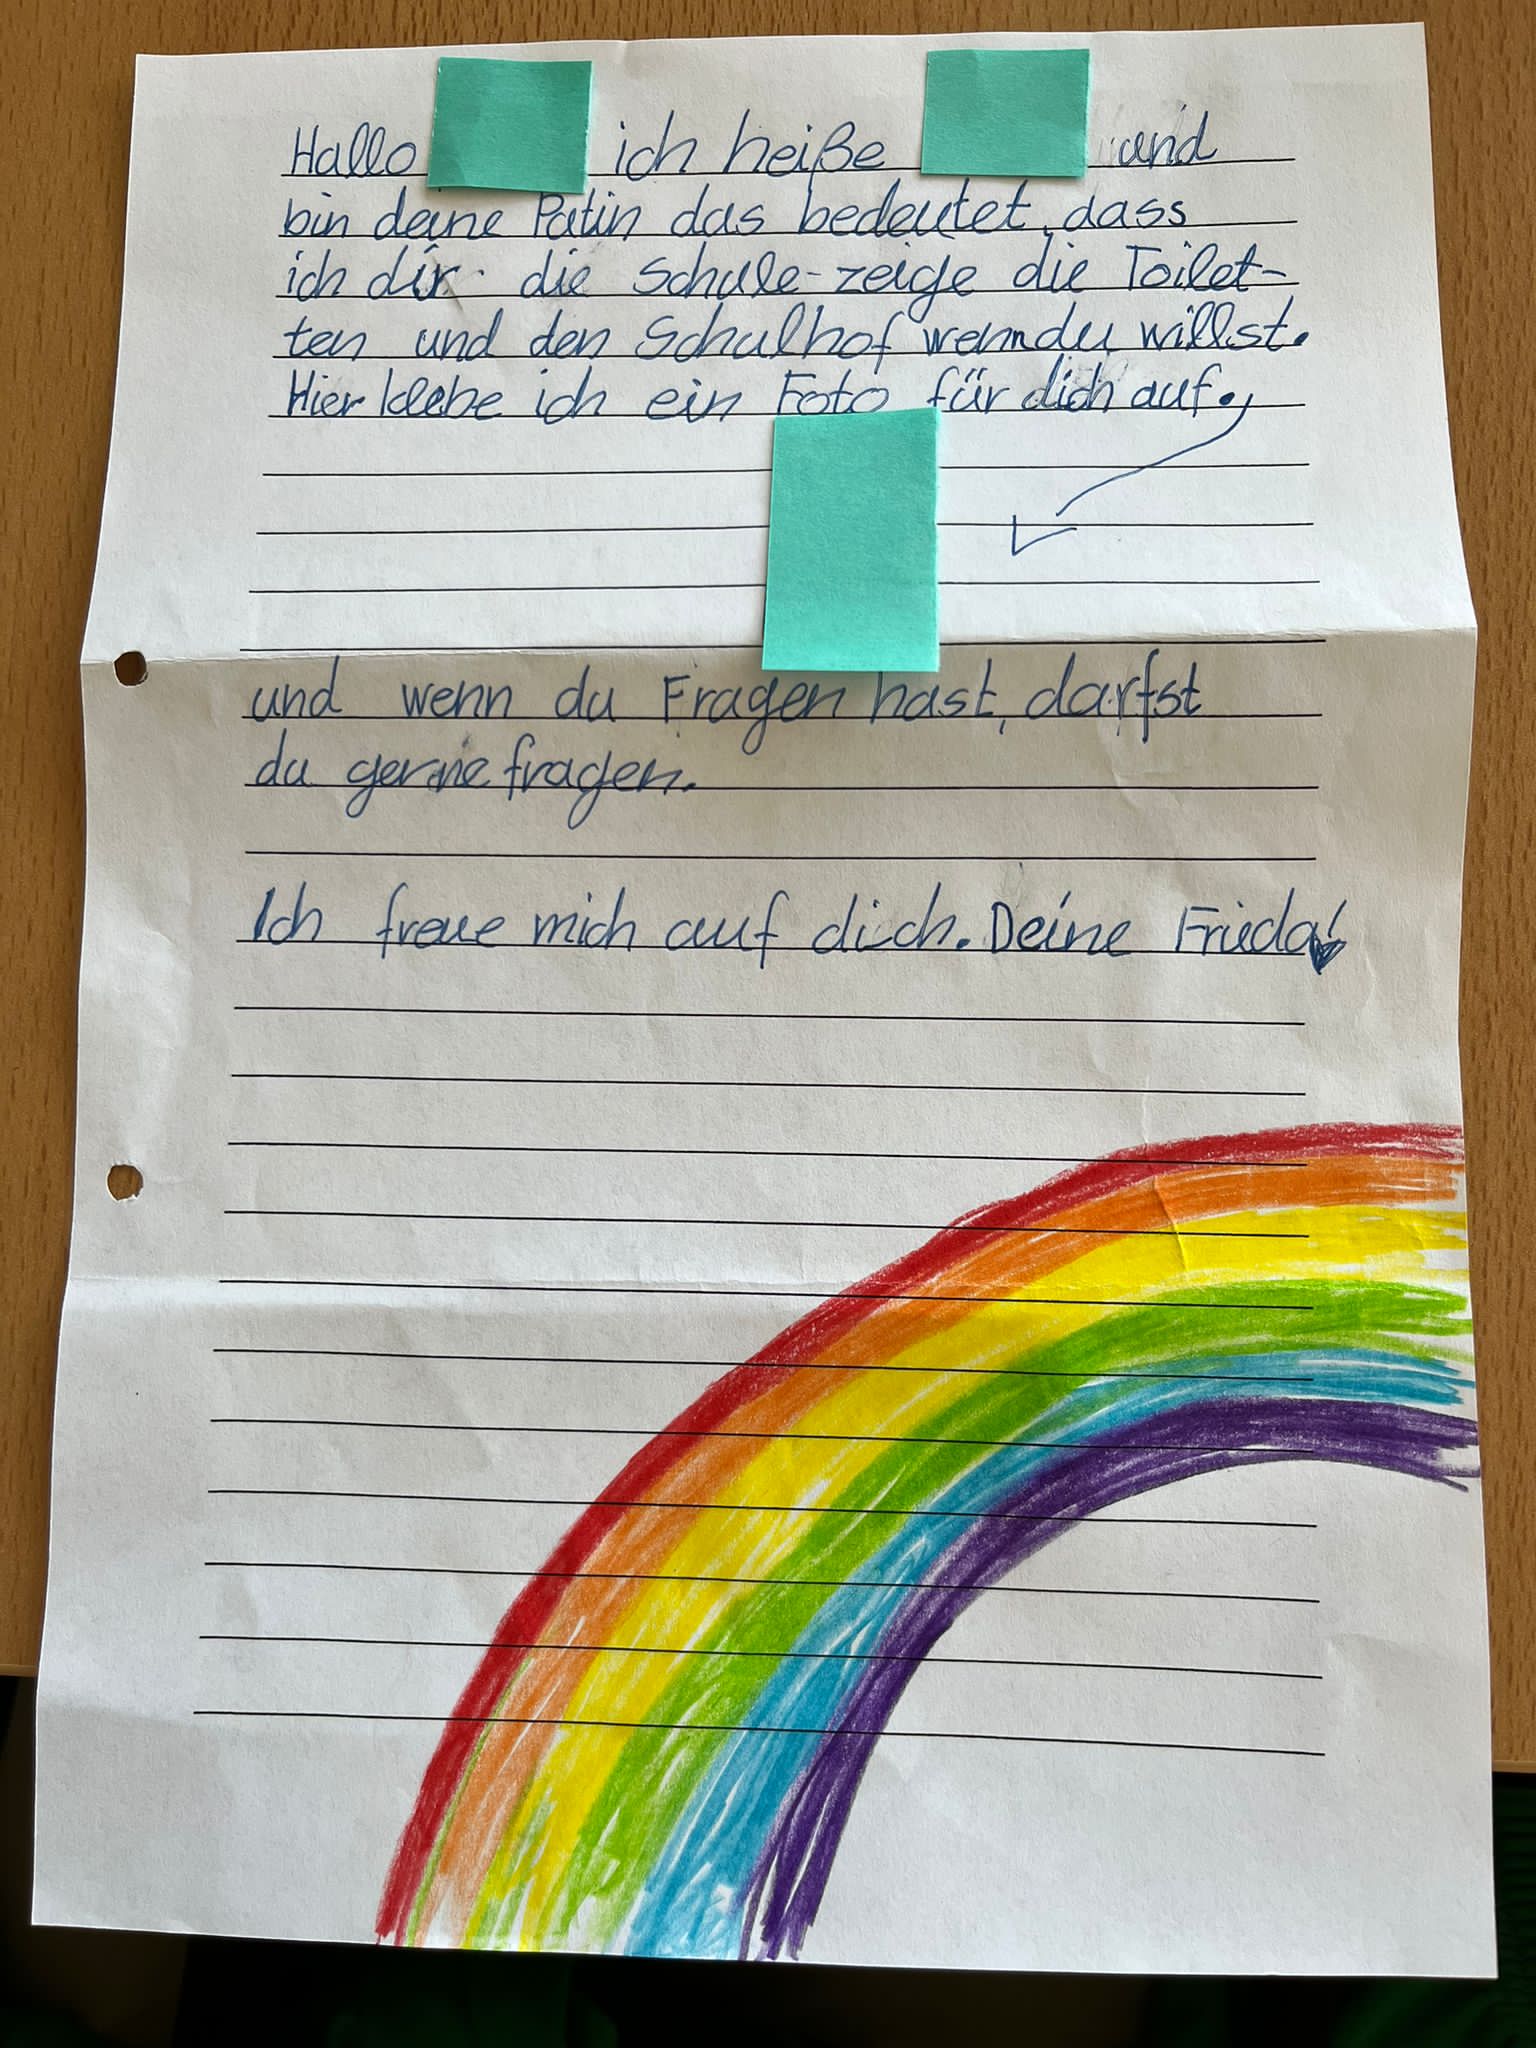 Hallo ich heiße und
bin deine Patin das bedeutet, dass
ich dir die Schule zeige die Toilet-
ten und den Schulhof wenn du willst.
Hier klebe ich ein Foto für dich auf.
und wenn du Fragen hast, darfst
du gerne fragen.
Ich freue mich auf dich. Deine Frieda!